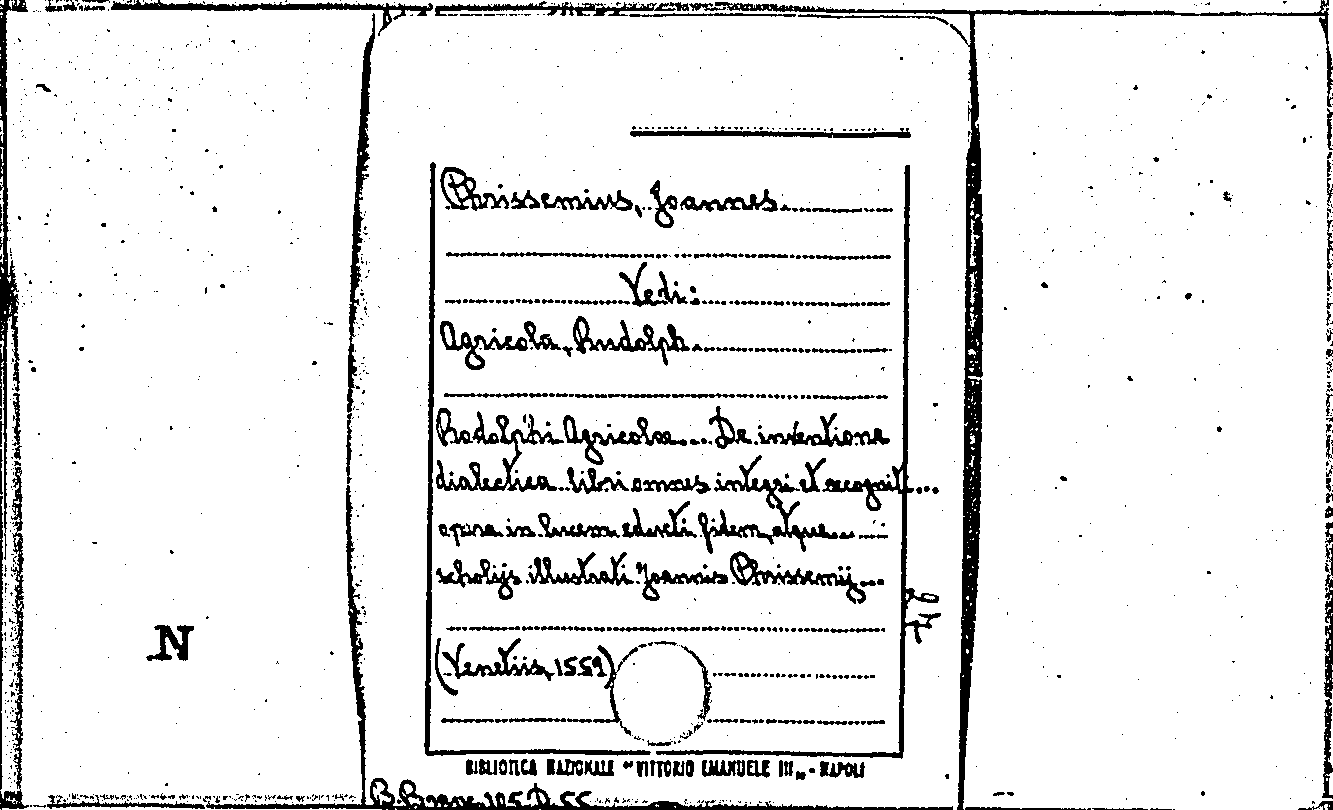 Phrissemius, Joannes.
Vedi:
Agricola, Rudolph.
Rodolphi Agricolae... De inventione
dialectica libri omnes integri et recogniti...
opera in lucem educti fidem, atque...
scholijs illustrati Joannis Phrissemij...
(Venetiis, 1559)
N
BIBLIOTECA NAZIONALE "VITTORIO EMANUELE III" - NAPOLI